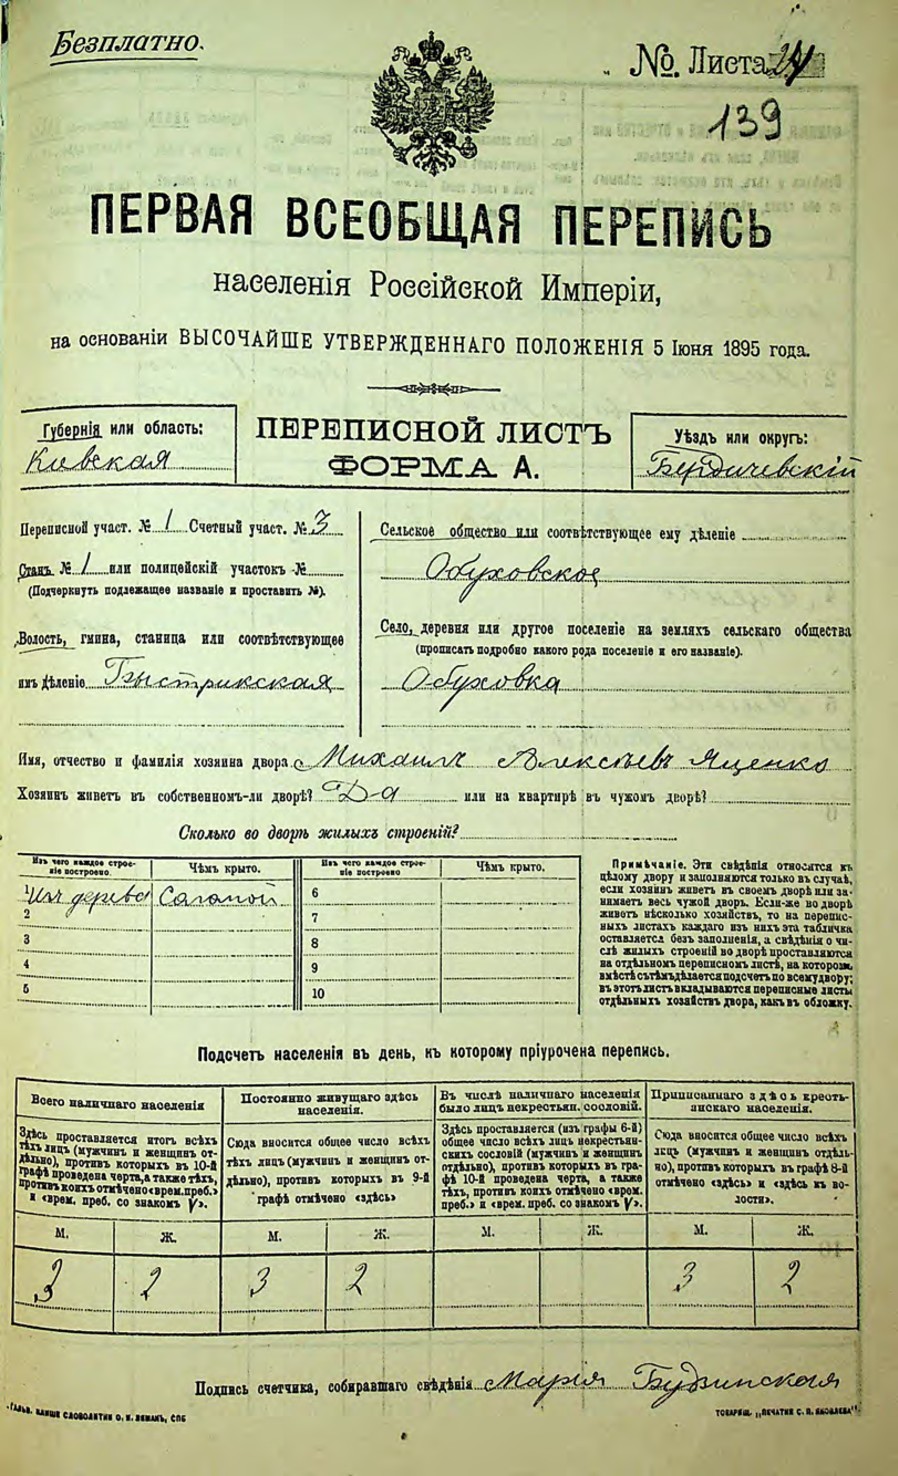 Безплатно.
№. Листа 24
139
ПЕРВАЯ ВСЕОБЩАЯ ПЕРЕПИСЬ
населенія Россійской Имперіи,
на основаніи ВЫСОЧАЙШЕ УТВЕРЖДЕННАГО ПОЛОЖЕНІЯ 5 Іюня 1895 года.
Губернія или область:
Кіевская
ПЕРЕПИСНОЙ ЛИСТЪ
ФОРМА А.
Уѣздъ или округъ:
Бердичевскій
Переписной участ. № 1 Счетный участ. № 3
Станъ № 1 или полицейскій участокъ №
(Подчеркнуть подлежащее названіе и проставить №).
Волость, гмина, станица или соотвѣтствующее
имъ дѣленіе Быстрикская
Сельское общество или соотвѣтствующее ему дѣленіе
Обуховское
Село, деревня или другое поселеніе на земляхъ сельскаго общества
(прописать подробно какого рода поселеніе и его названіе).
Обуховка
Имя, отчество и фамилія хозяина двора Михаилъ Алексѣевъ Яценко
Хозяинъ живетъ въ собственномъ-ли дворѣ? Да или на квартирѣ въ чужомъ дворѣ?
Сколько во дворѣ жилыхъ строеній?
Изъ чего каждое строе-
ніе построено.
Чѣмъ крыто.
Изъ чего каждое строе-
ніе построено
Чѣмъ крыто.
1 Изъ дерева Саломой
2
3
4
5
6
7
8
9
10
Примѣчаніе. Эти свѣдѣнія относятся къ
цѣлому двору и заполняются только въ случаѣ,
если хозяинъ живетъ въ своемъ дворѣ или за-
нимаетъ весь чужой дворъ. Если-же во дворѣ
живетъ нѣсколько хозяйствъ, то на перепис-
ныхъ листахъ каждаго изъ нихъ эта табличка
оставляется безъ заполненія, а свѣдѣнія о чи-
слѣ жилыхъ строеній во дворѣ проставляются
на отдѣльномъ переписномъ листѣ, на которомъ
вмѣстѣ съ тѣмъ дѣлается подсчетъ по всему двору;
въ этотъ листъ вкладываются переписные листы
отдѣльныхъ хозяйствъ двора, какъ въ обложку.
Подсчетъ населенія въ день, къ которому пріурочена перепись.
Всего наличнаго населенія
Здѣсь проставляется итогъ всѣхъ
тѣхъ лицъ (мужчинъ и женщинъ от-
дѣльно), противъ которыхъ въ 10-й
графѣ проведена черта, а также тѣхъ,
противъ коихъ отмѣчено «врем. преб.»
и «врем. преб. со знакомъ V».
Постоянно живущаго здѣсь
населенія.
Сюда вносится общее число всѣхъ
тѣхъ лицъ (мужчинъ и женщинъ от-
дѣльно), противъ которыхъ въ 9-й
графѣ отмѣчено «здѣсь»
Въ числѣ наличнаго населенія
было лицъ некрестьян. сословій.
Здѣсь проставляется (изъ графы 6-й)
общее число всѣхъ лицъ некрестьян-
скихъ сословій (мужчинъ и женщинъ
отдѣльно), противъ которыхъ въ гра-
фѣ 10-й проведена черта, а также
тѣхъ, противъ коихъ отмѣчено «врем.
преб.» и «врем. преб. со знакомъ V».
Приписаннаго здѣсь кресть-
янскаго населенія.
Сюда вносится общее число всѣхъ
лицъ (мужчинъ и женщинъ отдѣль-
но), противъ которыхъ въ графѣ 8-й
отмѣчено «здѣсь» и «здѣсь къ во-
лости».
М. Ж. М. Ж. М. Ж. М. Ж.
3 2 3 2 3 2
Подпись счетчика, собиравшаго свѣдѣнія Марія Будзинская
ТОВАРИЩ. „ПЕЧАТНЯ С. П. ЯКОВЛЕВА“